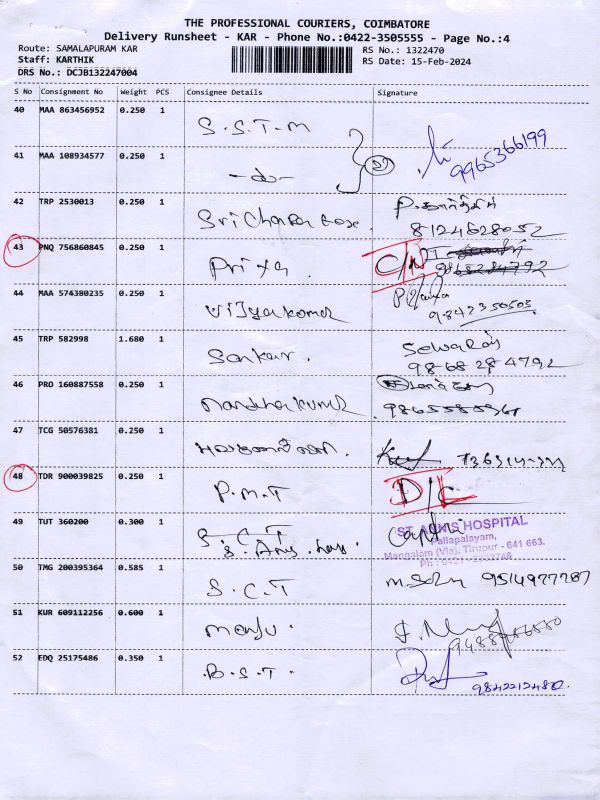 THE PROFESSIONAL COURIERS, COIMBATORE
Delivery Runsheet - KAR - Phone No.:0422-3505555 - Page No.:4
Route: SAMALAPURAM KAR
RS No.: 1322470
Staff: KARTHIK
RS Date: 15-Feb-2024
DRS No.: DCJB132247004
S No Consignment No Weight PCS Consignee Details Signature
40 MAA 863456952 0.250 1 S.S.T.M
9965366199
41 MAA 108934577 0.250 1 -do-
42 TRP 2530013 0.250 1 Sri Charan
8124628052
43 PNQ 756860845 0.250 1 Priya.
44 MAA 574380235 0.250 1 Vijyakumar
9842350503
45 TRP 582998 1.680 1 Sankar. Selvaraj
9868284792
46 PRO 160887558 0.250 1 Nandhakumar
47 TCG 50576381 0.250 1
48 TDR 900039825 0.250 1 P.M.T D/L
49 TUT 360200 0.300 1 S.C.T
ST. ANNS HOSPITAL
Pallapalayam,
Mangalam (Via), Tirupur - 641 663.
50 TMG 200395364 0.585 1 S.C.T 9514977787
51 KUR 609112256 0.600 1 Manju.
52 EDQ 25175486 0.350 1 B.S.T.
9842212480